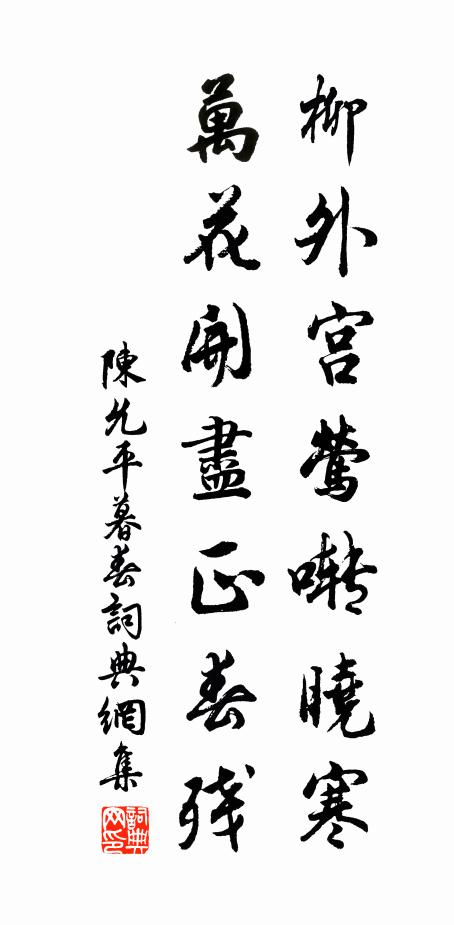 柳外宫鶯囀曉寒
萬花開盡正春殘
陳允平暮春詞典網集
詞典网印